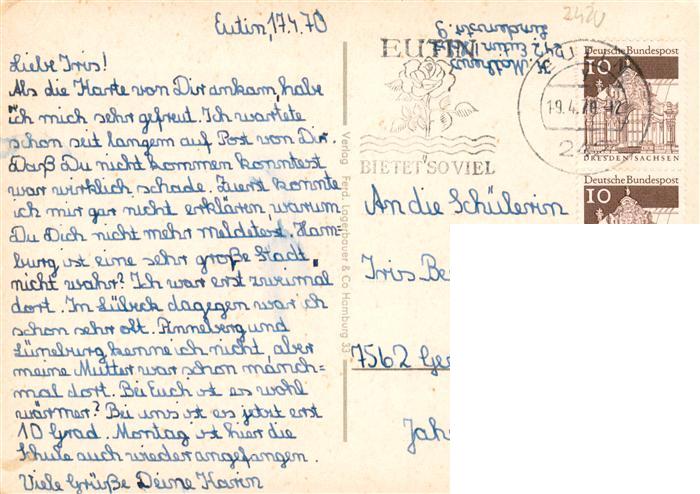 Eutin, 17.4.70
Liebe Iris!
Als die Karte von Dir ankam, habe
ich mich sehr gefreut. Ich wartete
schon seit langem auf Post von Dir.
Daß Du nicht kommen konntest
war wirklich schade. Zuerst konnte
ich mir gar nicht erklären, warum
Du Dich nicht mehr meldetest. Ham-
burg ist eine sehr große Stadt,
nicht wahr? Ich war erst zweimal
dort. In Lübeck dagegen war ich
schon sehr oft. Pinneberg und
Lüneburg kenne ich nicht, aber
meine Mutter war schon manch=
mal dort. Bei Euch ist es wohl
wärmer? Bei uns ist es jetzt erst
10 Grad. Montag ist hier die
Schule auch wieder angefangen.
Viele Grüße Deine Karin
Verlag Ferd. Lagerbauer & Co Hamburg 33
2420
242 Eutin
Lindenstr. 9
EUTIN
BIETET SO VIEL
19.4.70-12
Deutsche Bundespost
10
DRESDEN/SACHSEN
Deutsche Bundespost
10
An die Schülerin
Iris Be
7562 Ger
Jah